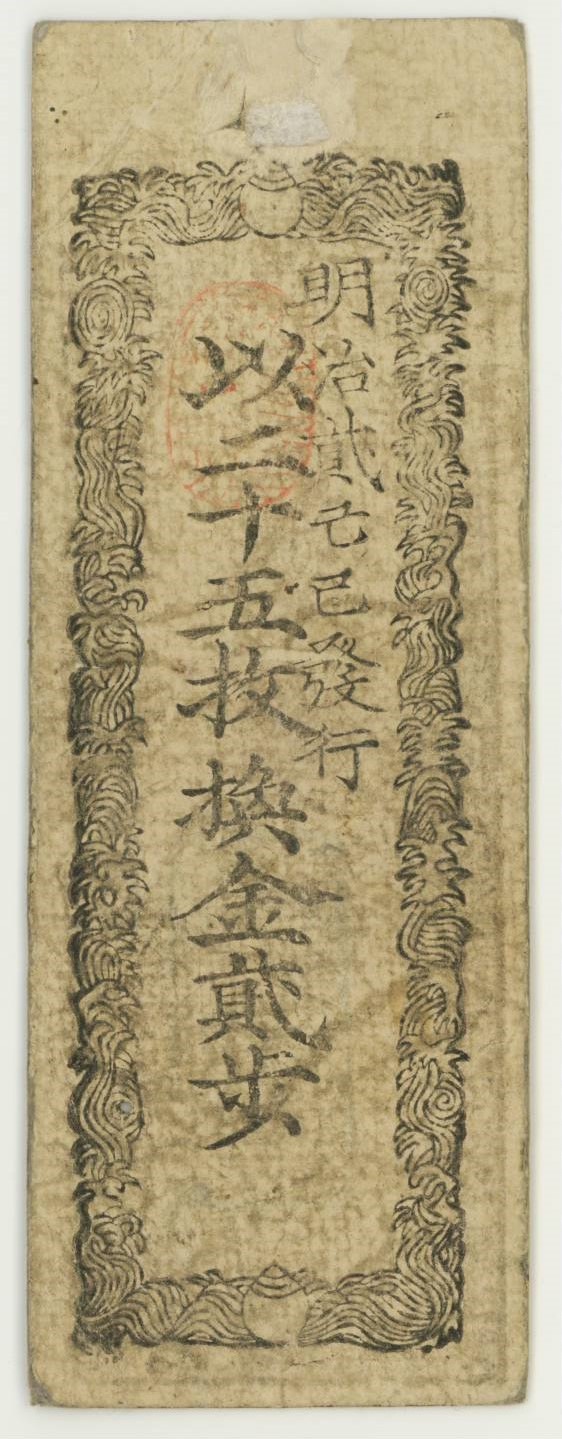 明治貳己巳發行
以二十五枚換金貳步